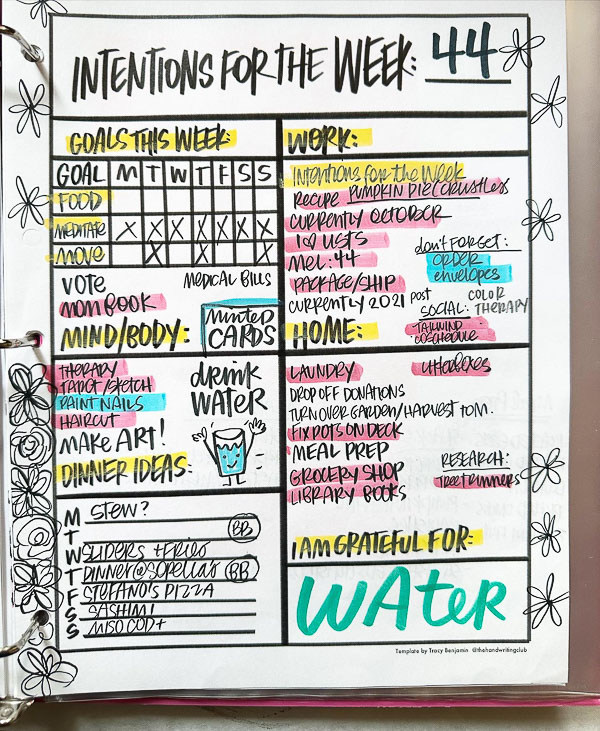 INTENTIONS FOR THE WEEK: 44
GOALS THIS WEEK:
GOAL M T W T F S S
FOOD
MEDITATE X X X X X X X
MOVE X X X
VOTE
MEDICAL BILLS
MOM BOOK
minted
CARDS
MIND/BODY:
THERAPY
TAROT/SKETCH
PAINT NAILS
HAIRCUT
MAKE ART!
drink
WATER
DINNER IDEAS:
M STEW?
T BB
W SLIDERS + FRIES
T DINNER@SOPELLA'S BB
F STEFANO'S PIZZA
S SASHIMI
S MISO COD +
WORK:
Intentions for the Week
RECIPE PUMPKIN PIE CRUSTLESS
CURRENTLY OCTOBER
LISTS
MEL: 44
PACKAGE/SHIP
CURRENTLY 2021 post
don't FORGET:
ORDER
envelopes
COLOR
THERAPY
SOCIAL:
TAILWIND
COSCHEDULE
HOME:
LAUNDRY
DROP OFF DONATIONS
TURN OVER GARDEN/HARVEST TOM.
FIX POTS ON DECK
MEAL PREP
GROCERY SHOP
LIBRARY BOOKS
RESEARCH:
I AM GRATEFUL FOR:
WATER
Template by Tracy Benjamin @thehandwritingclub